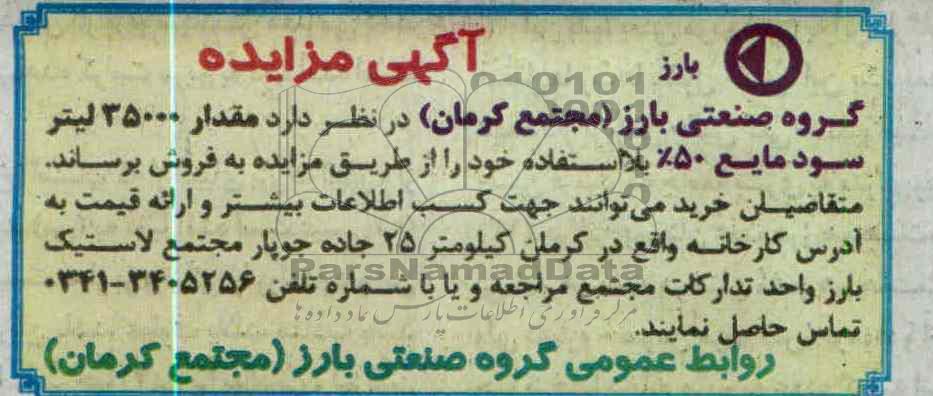 آگهی مزایده
بارز
گروه صنعتی بارز (مجتمع کرمان) در نظر دارد مقدار ۳۵۰۰۰ لیتر
سود مایع ۵۰٪ بلااستفاده خود را از طریق مزایده به فروش برساند.
متقاضیان خرید می‌توانند جهت کسب اطلاعات بیشتر و ارائه قیمت به
آدرس کارخانه واقع در کرمان کیلومتر ۲۵ جاده جوپار مجتمع لاستیک
بارز واحد تدارکات مجتمع مراجعه و یا با شماره تلفن ۳۴۰۵۲۵۶-۰۳۴۱
تماس حاصل نمایند.
روابط عمومی گروه صنعتی بارز (مجتمع کرمان)
ParsNamadData
مرکز فرآوری اطلاعات پارس نماد داده ها